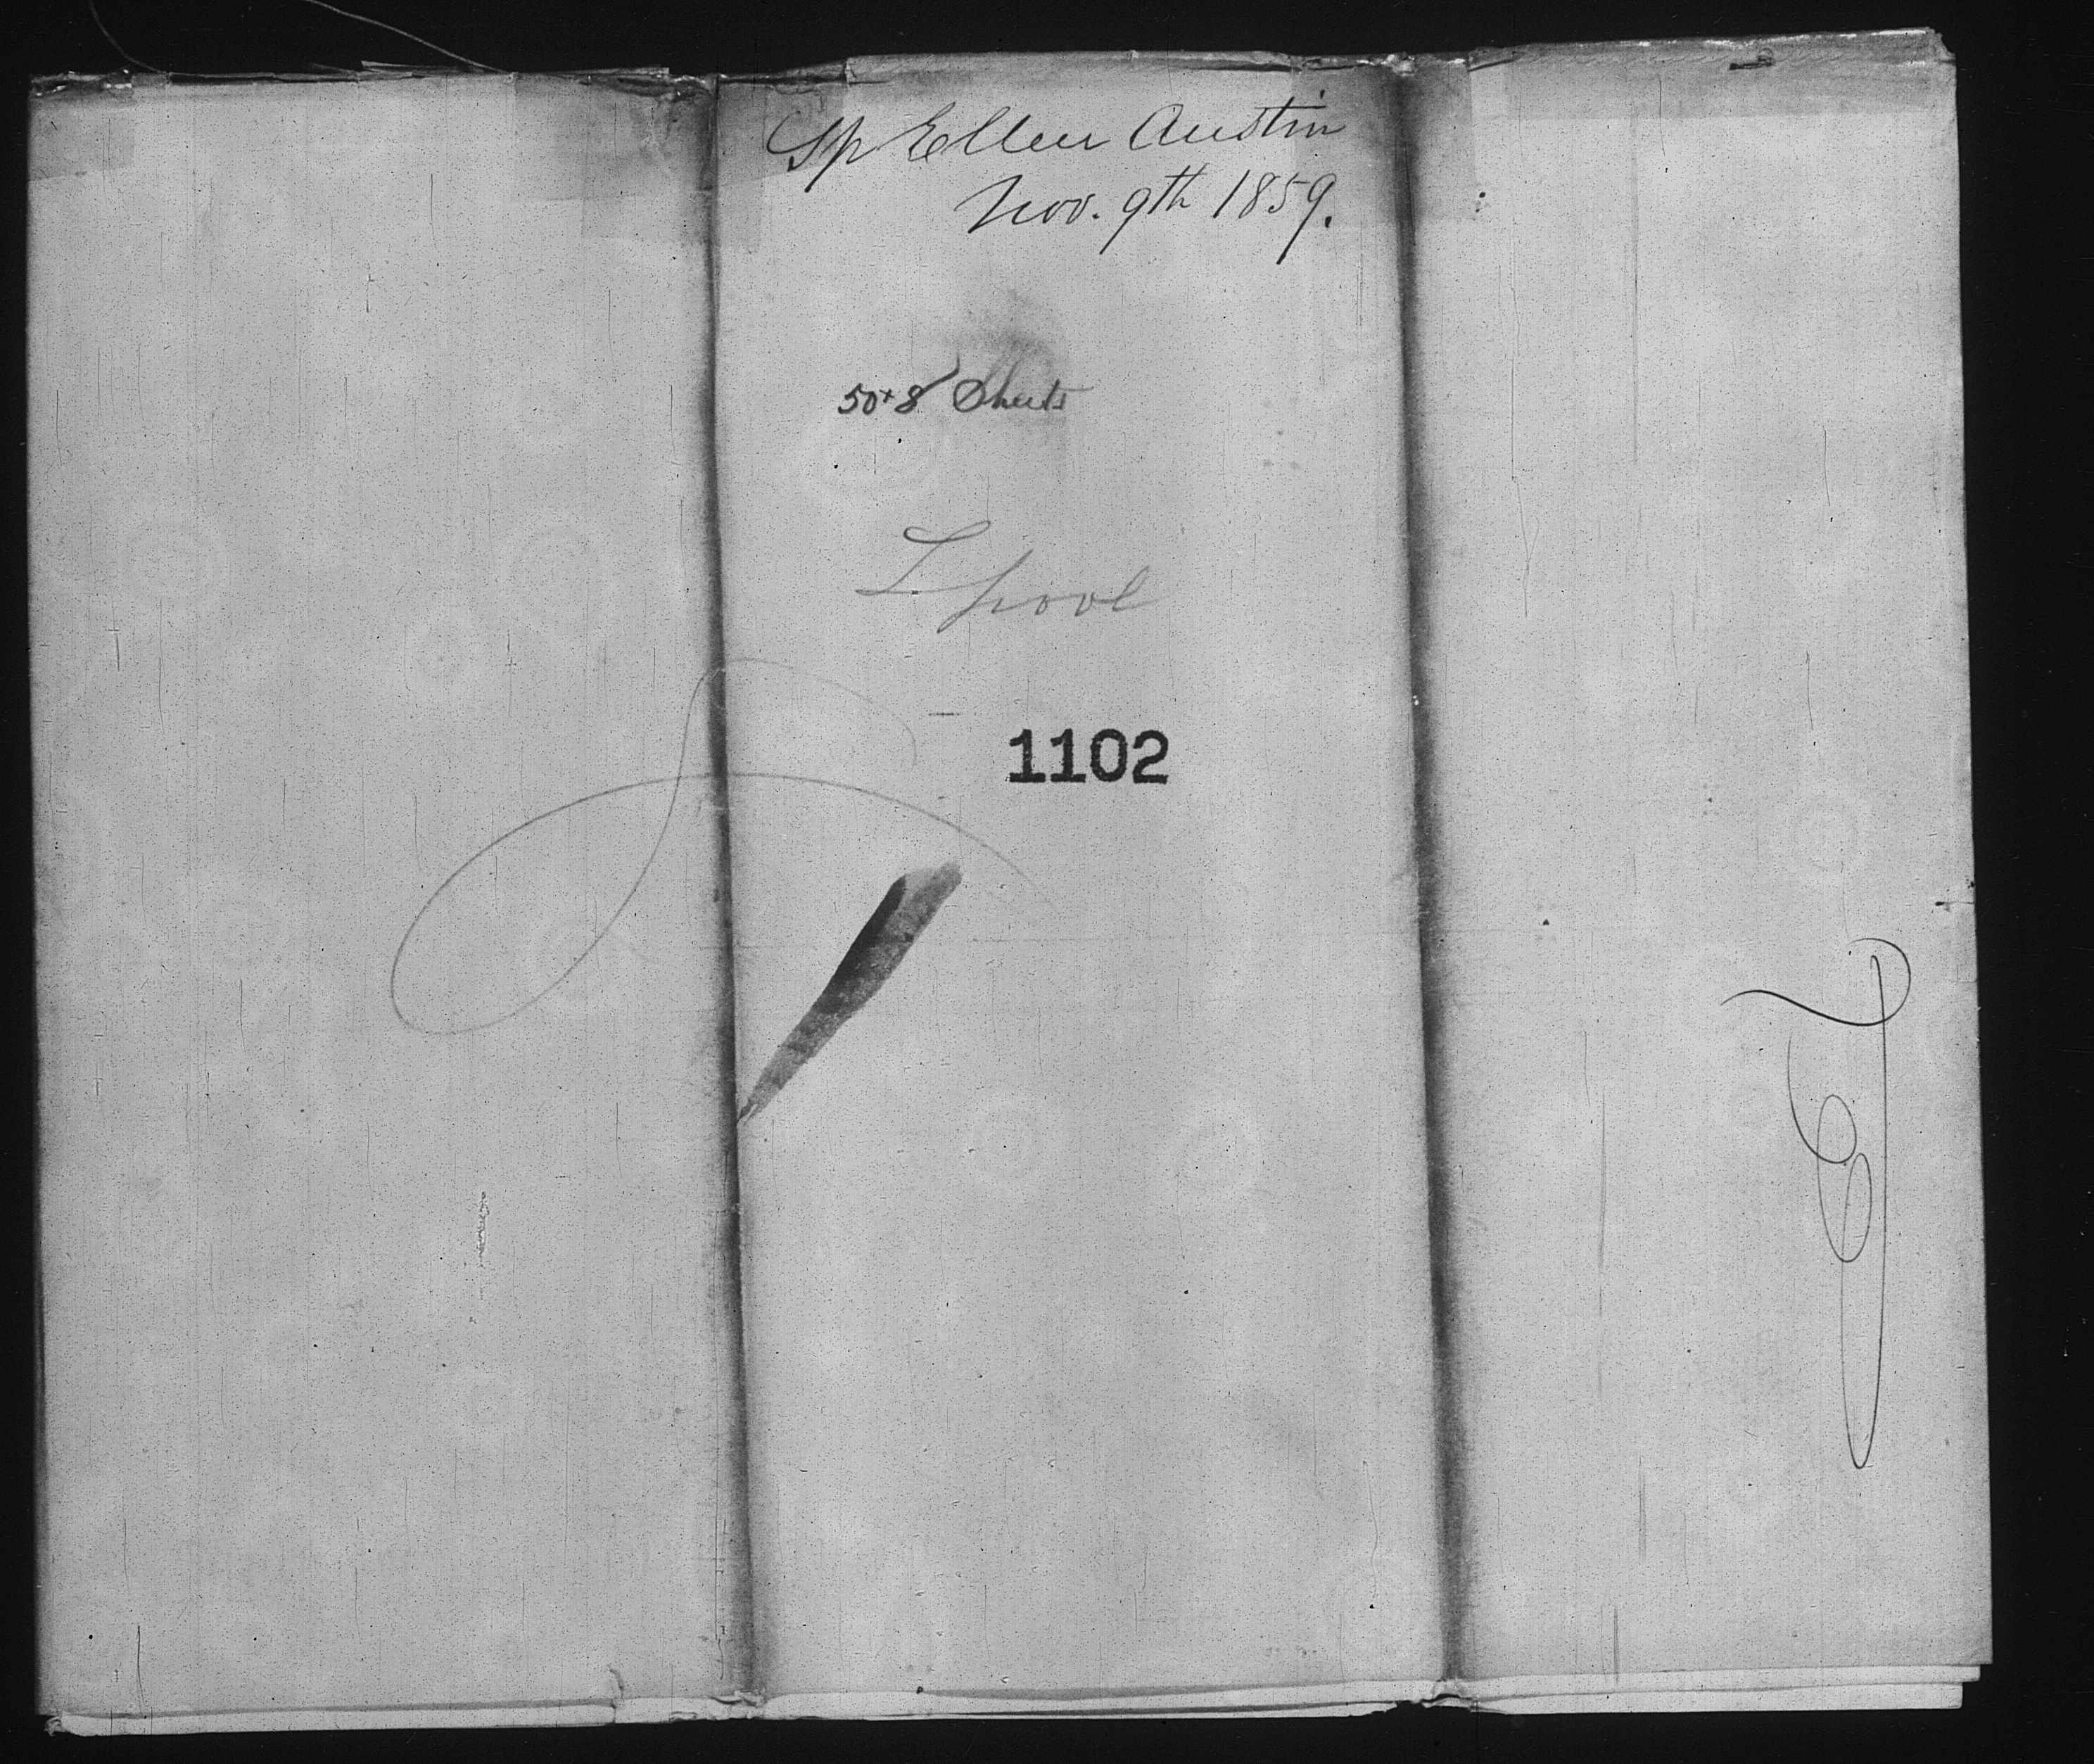 Sp Ellen Austin
Nov. 9th 1859.
50+8 Sheets
Lpool
1102